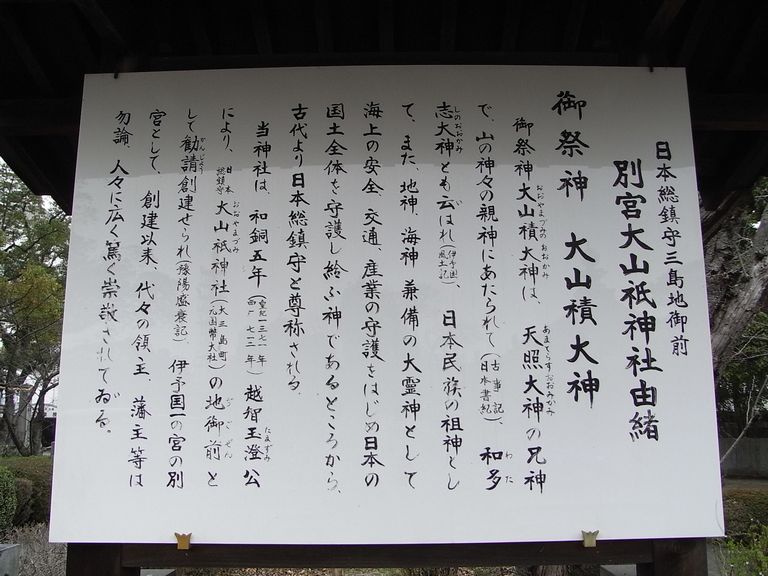 日本総鎮守三島地御前
別宮大山祇神社由緒
御祭神 大山積大神
御祭神大山積大神は、天照大神の兄神
で、山の神々の親神にあたられて(古事記 日本書紀)、和多
志大神とも云はれ(伊予国風土記)、日本民族の祖神とし
て、また、地神、海神兼備の大霊神として
海上の安全、交通、産業の守護をはじめ日本の
国土全体を守護し給ふ神であるところから、
古代より日本総鎮守と尊称される。
当神社は、和銅五年(皇紀一三七二年 西暦七一二年)越智玉澄公
により、日本総鎮守大山祇神社(大三島町 元国幣大社)の地御前と
して勧請創建せられ(予陽盛衰記)、伊予国一の宮の別
宮として、創建以来、代々の領主、藩主等は
勿論、人々に広く篤く崇敬されてゐる。